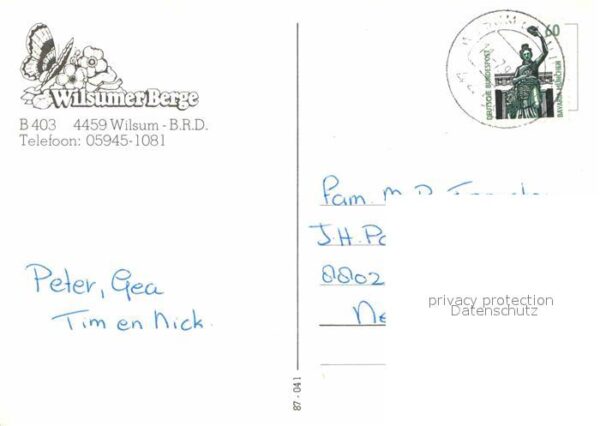 Wilsumer Berge
B 403 4459 Wilsum - B.R.D.
Telefoon: 05945-1081
60
DEUTSCHE BUNDESPOST
BAVARIA MÜNCHEN
Peter, Gea
Tim en Nick.
Fam. M.D.
J.H.
8802
privacy protection
Datenschutz
87 - 041